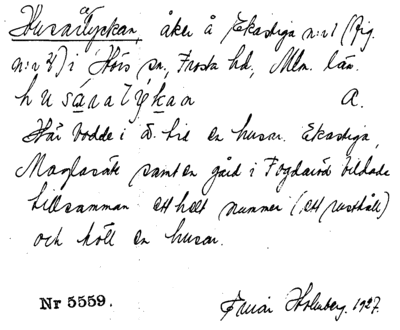 Husarlyckan, åker å Ekastiga n:r 1 (fig.
n:r 4) i Hörs sn, Frosta hd, Mlm. län.
husáralýkan A.
Här bodde i ä. tid en husar. Ekastiga,
Maglasäte samt en gård i Fogdaröd bildade
tillsamman ett helt nummer (ett rusthåll)
och höll en husar.
Nr 5559. Einar Holmberg. 1927.